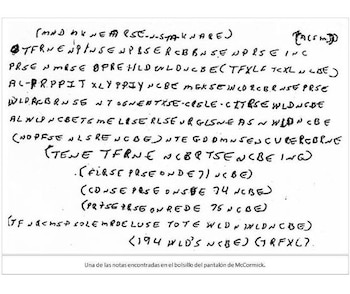 (MNDMKNEARSE-N-S-M-KNARE) (ACSM)
TFRNENPINSENPBSERCBBNSENPRSE INC
PRSE NMRSE OPREHLDWLDNCBE (TFXLF TCXL NCBE)
AL-PRPPIT XLY PPIY NCBE MGKSE WLDRCBRNSE PRSE
WLDRCBRNSE NT SGNENTXSE-CRSLE-CITRSE WLD NCBE
ALWLP NCBE TSME LRSE RLSE URGLSNE AS N WLD NCBE
(NOPFSE NLSRE NCBE) NTE GDDMNSENCURERCBRNE
(TENE TFRNE NCBRTSE NCBE INC)
(FIRSE PRSE ONDE 71 NCBE)
(CDNSE PRSE ONSDE 74 NCBE)
(PRTSE PRSE ONREDE 75 NCBE)
(TFNRCMSP SOLE MRDE LUSE TOTE WLD N WLD NCBE)
(194 WLD'S NCBE) (TRFXL)
Una de las notas encontradas en el bolsillo del pantalón de McCormick.